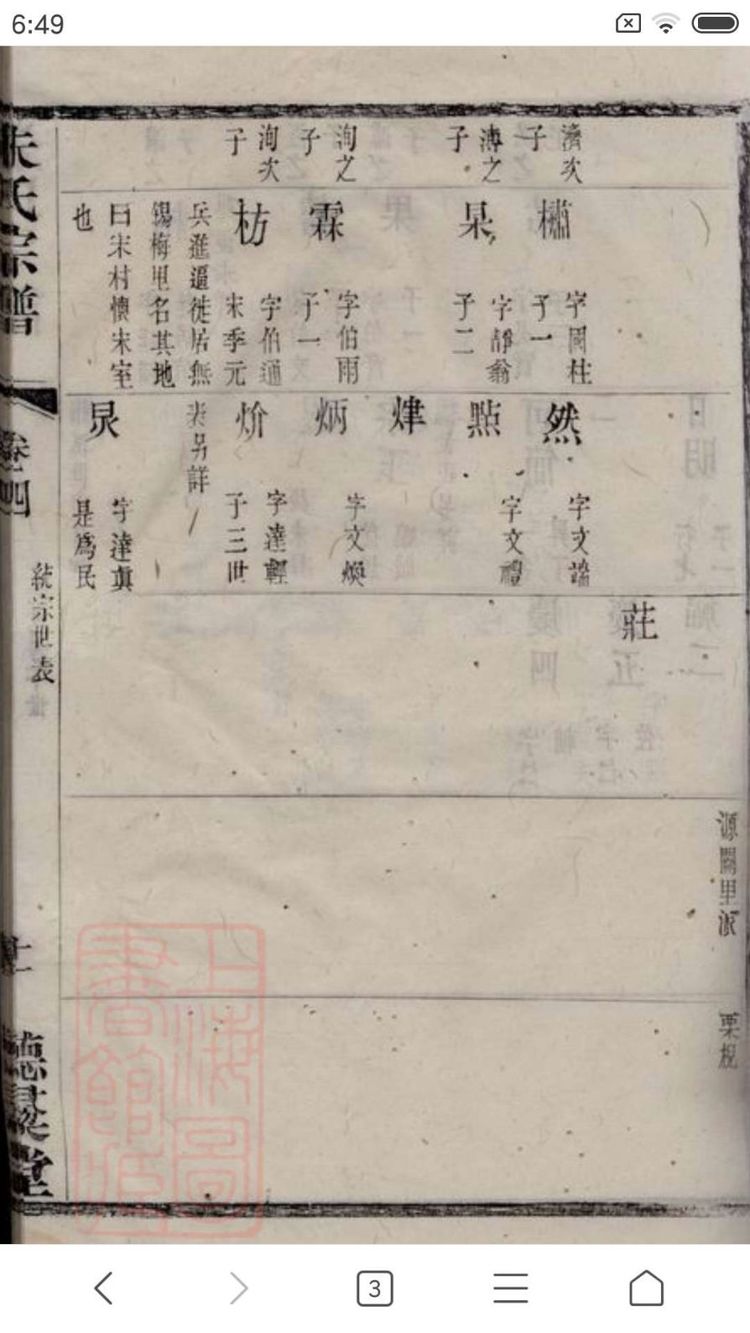 6:49
濟次
子
溥之
子
洵之
子
洵次
子
橚
字國柱
子一
杲
字靜翁
子二
霖
字伯雨
子一
枋
字伯通
宋季元
兵進逼徙居無
錫梅里名其地
曰宋村懷宋室
也
然
字文謚
點
字文禮
煒
炳
字文煥
炌
字達輕
子三世
表另詳
炅
字達真
是為民
莊
源關里派
朱氏宗譜
卷四
統宗世表
十一
德聚堂
上海圖
書館藏
3